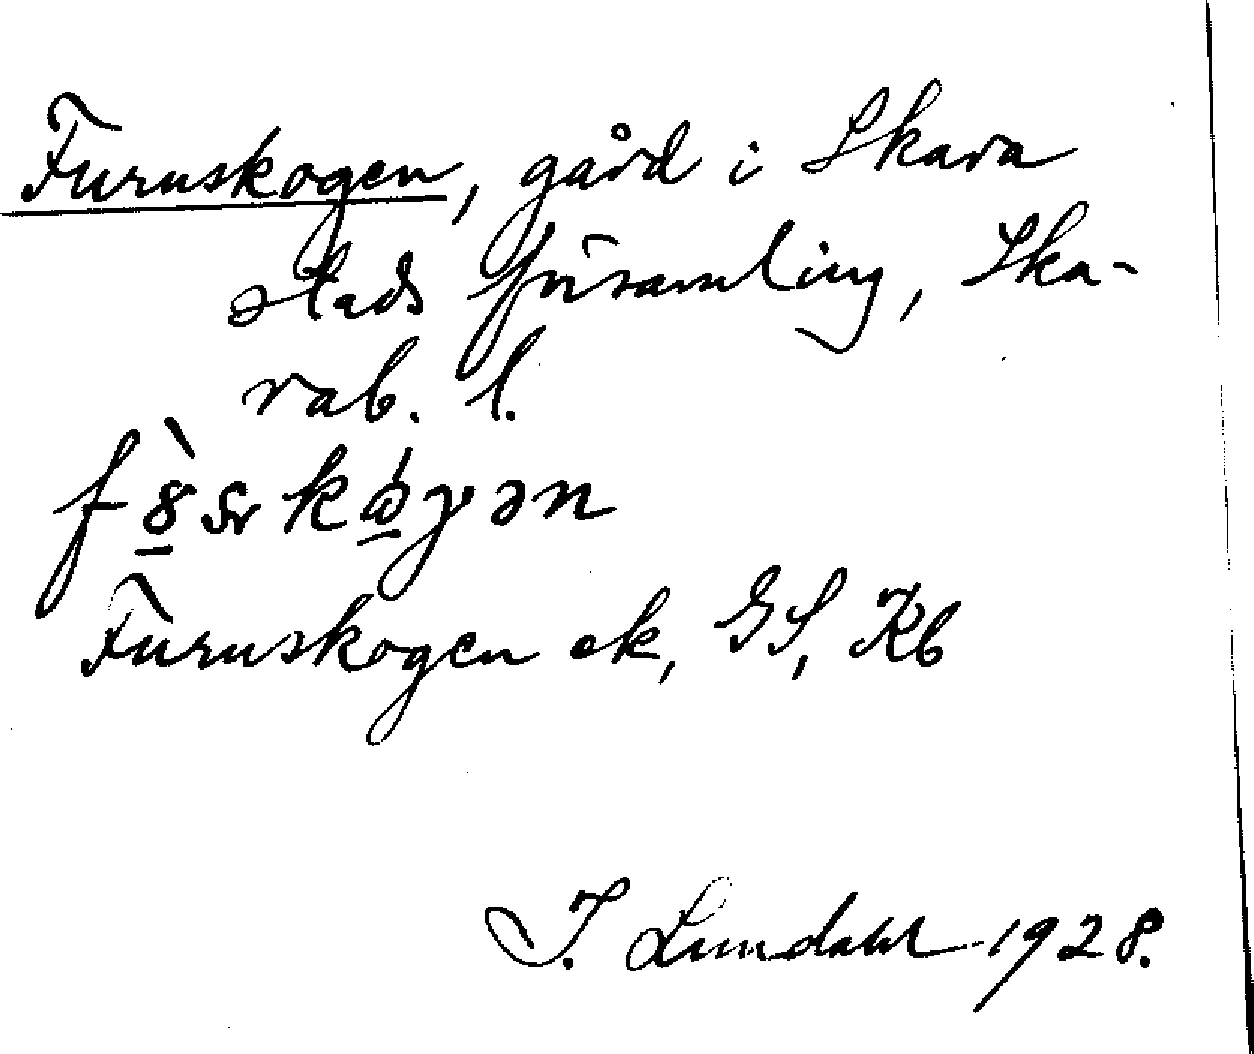 Furuskogen, gård i Skara
stads församling, Ska-
rab. l.
Furuskogen ek, GS, Kb
I. Lundahl 1928.